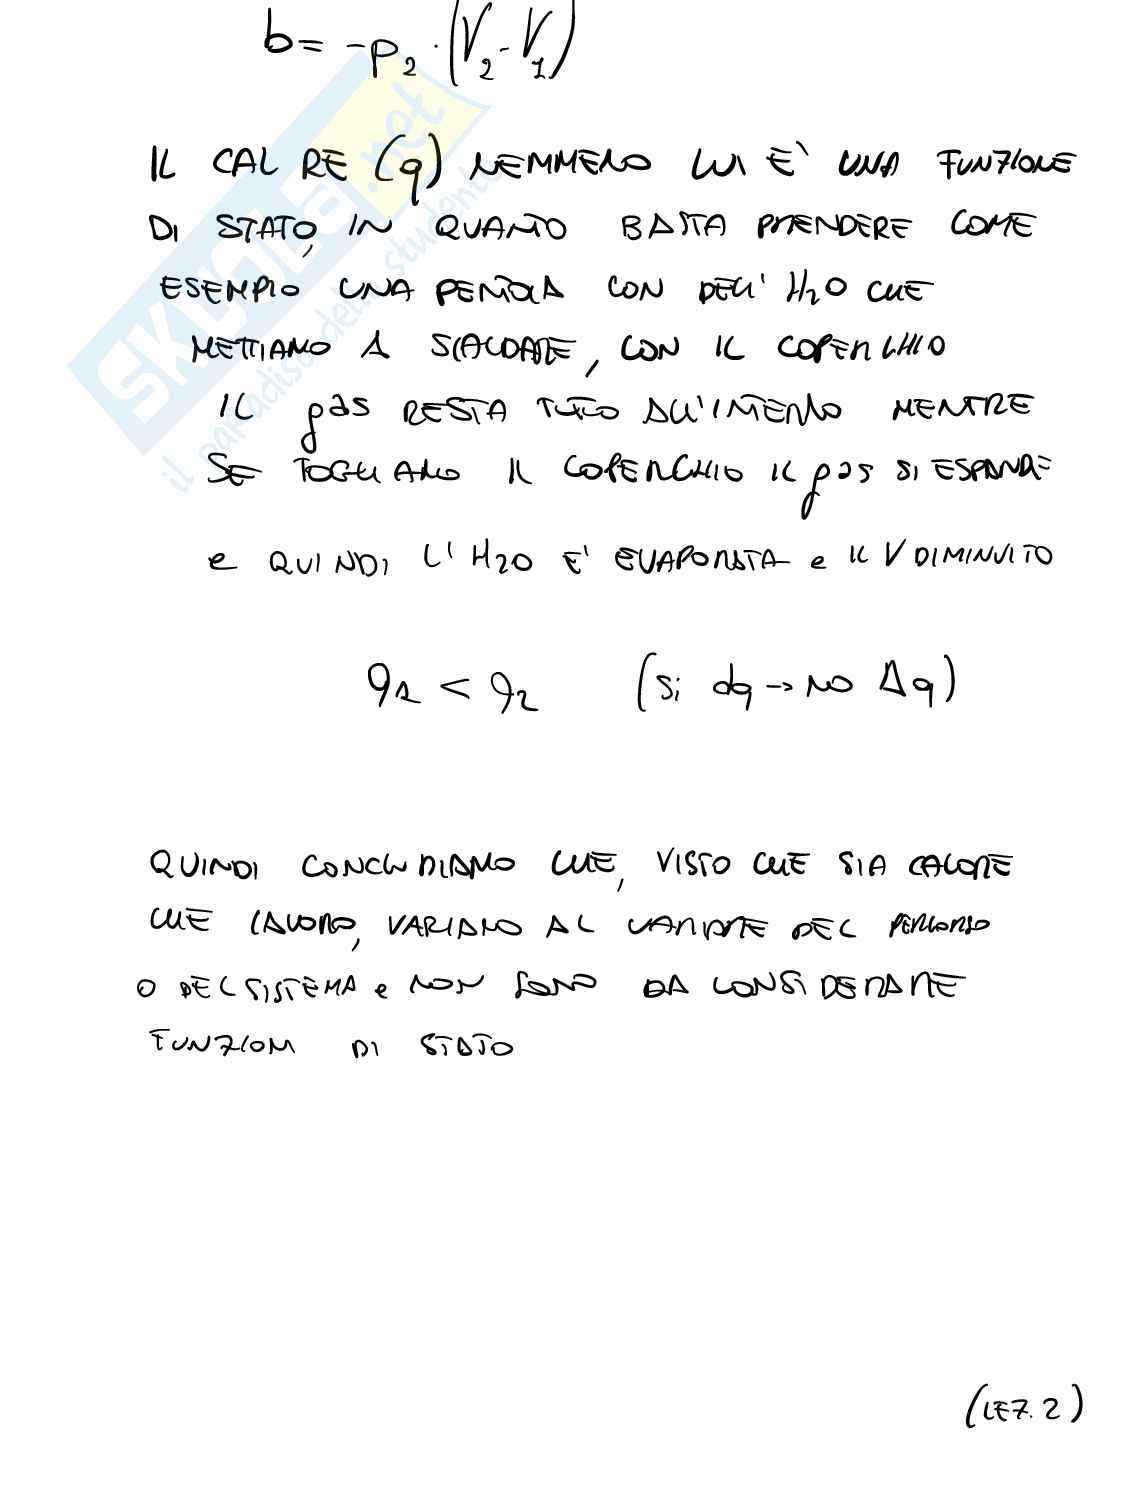 b = -p₂ · (V₂ - V₁)
IL CAL RE (q) NEMMENO LUI È UNA FUNZIONE
DI STATO, IN QUANTO BASTA PRENDERE COME
ESEMPIO UNA PENTOLA CON DELL' H₂O CHE
METTIAMO A SCALDARE, CON IL COPERCHIO
IL gas RESTA TUTTO ALL'INTERNO MENTRE
SE TOGLIAMO IL COPERCHIO IL gas SI ESPANDE
e QUINDI L' H₂O E' EVAPORATA e IL V DIMINUITO
q₁ < q₂ (si dq → NO Δq)
QUINDI CONCLUDIAMO CHE, VISTO CHE SIA CALORE
CHE LAVORO, VARIANO AL VARIARE DEL PERCORSO
O DEL SISTEMA e NON SONO DA CONSIDERARE
FUNZIONI DI STATO
(LEZ. 2)
SKUOLA.net
il paradiso dello studente